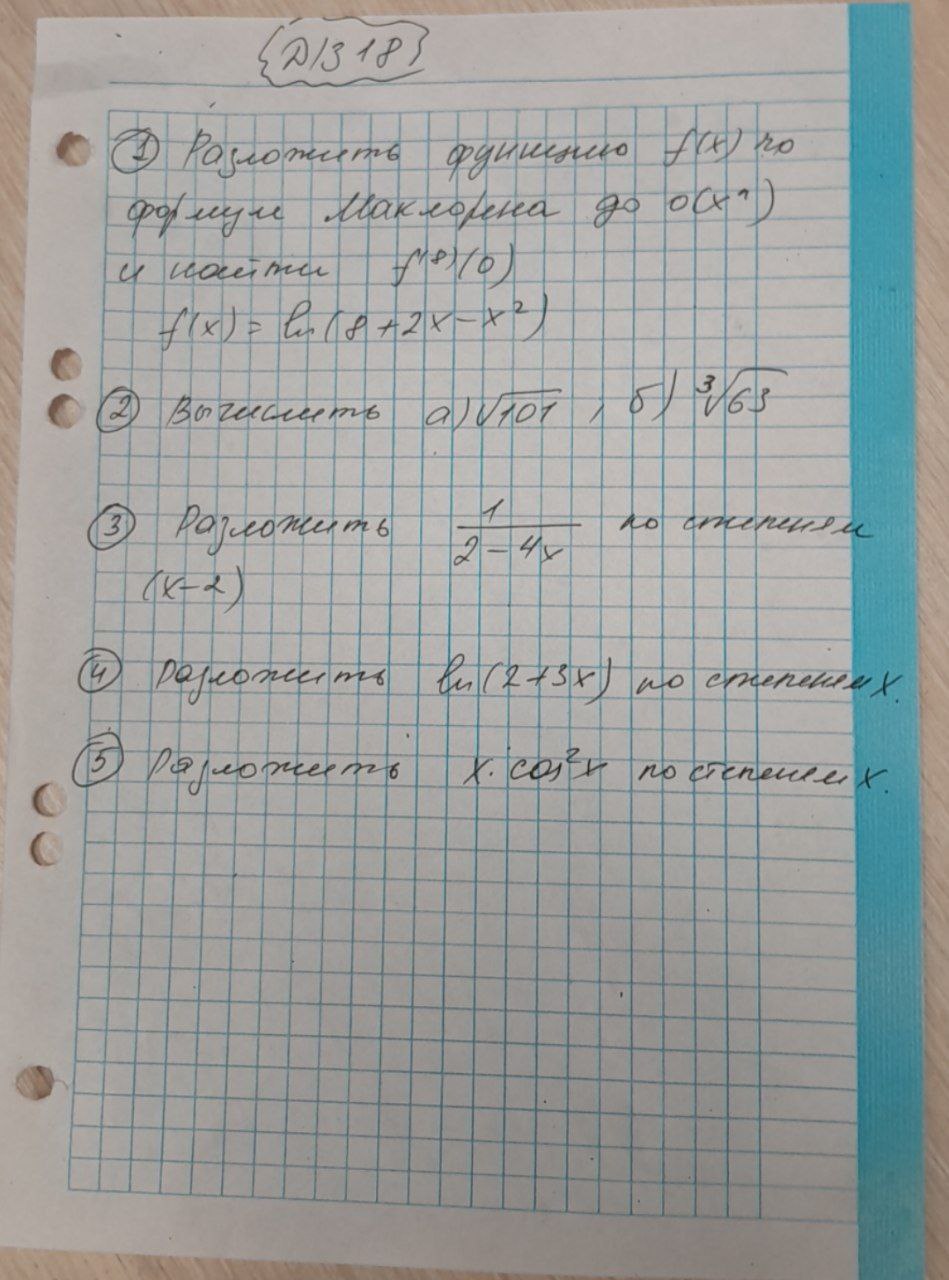 Д/З 18
① Разложить функцию f(x) по
формул Маклорена до o(xⁿ)
и найти f⁽⁸⁾(0)
f(x) = ln(8+2x-x²)
② Вычислить а) √101 ; б) ³√63
③ Разложить 1/(2-4x) по степеням
(x-2)
④ Разложить ln(2+3x) по степеням x.
⑤ Разложить x·cos²x по степеням x.